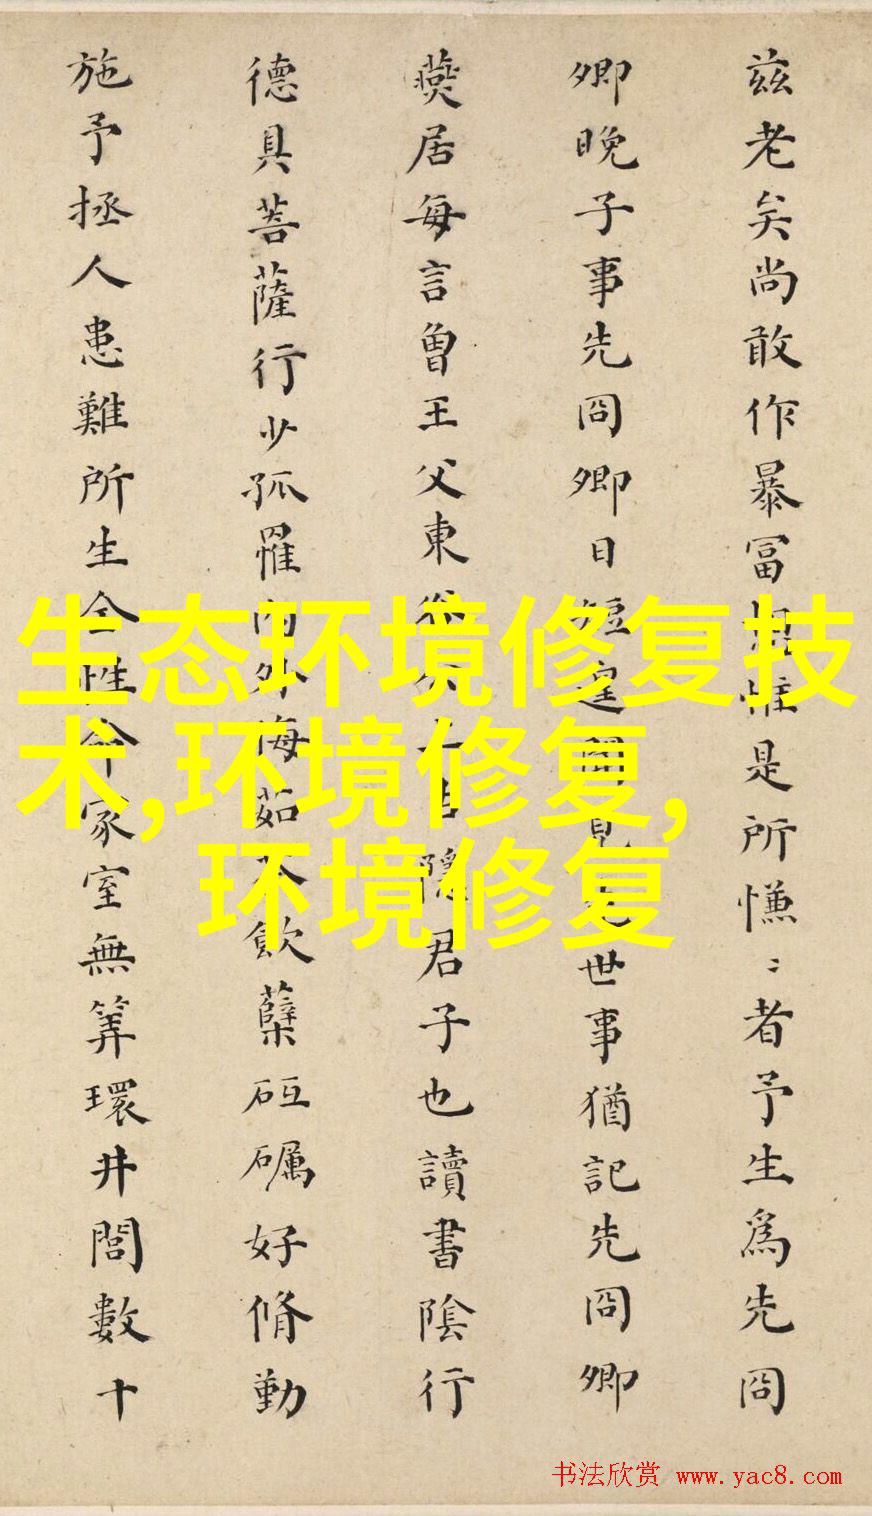 兹老矣尚敢作暴富是所慊〻者予生爲先冏
卿晚子事先冏卿日短世事猶記先冏卿
燕居每言曾王父東隱君子也讀書陰行
德具菩薩行少孤罹内外侮茹荼飲蘗砥礪好脩勤
施予拯人患難所生全性命家室無筭環井閭數十
生态环境修复技
术,环境修复,
环境修复
书法欣赏 www.yac8.com